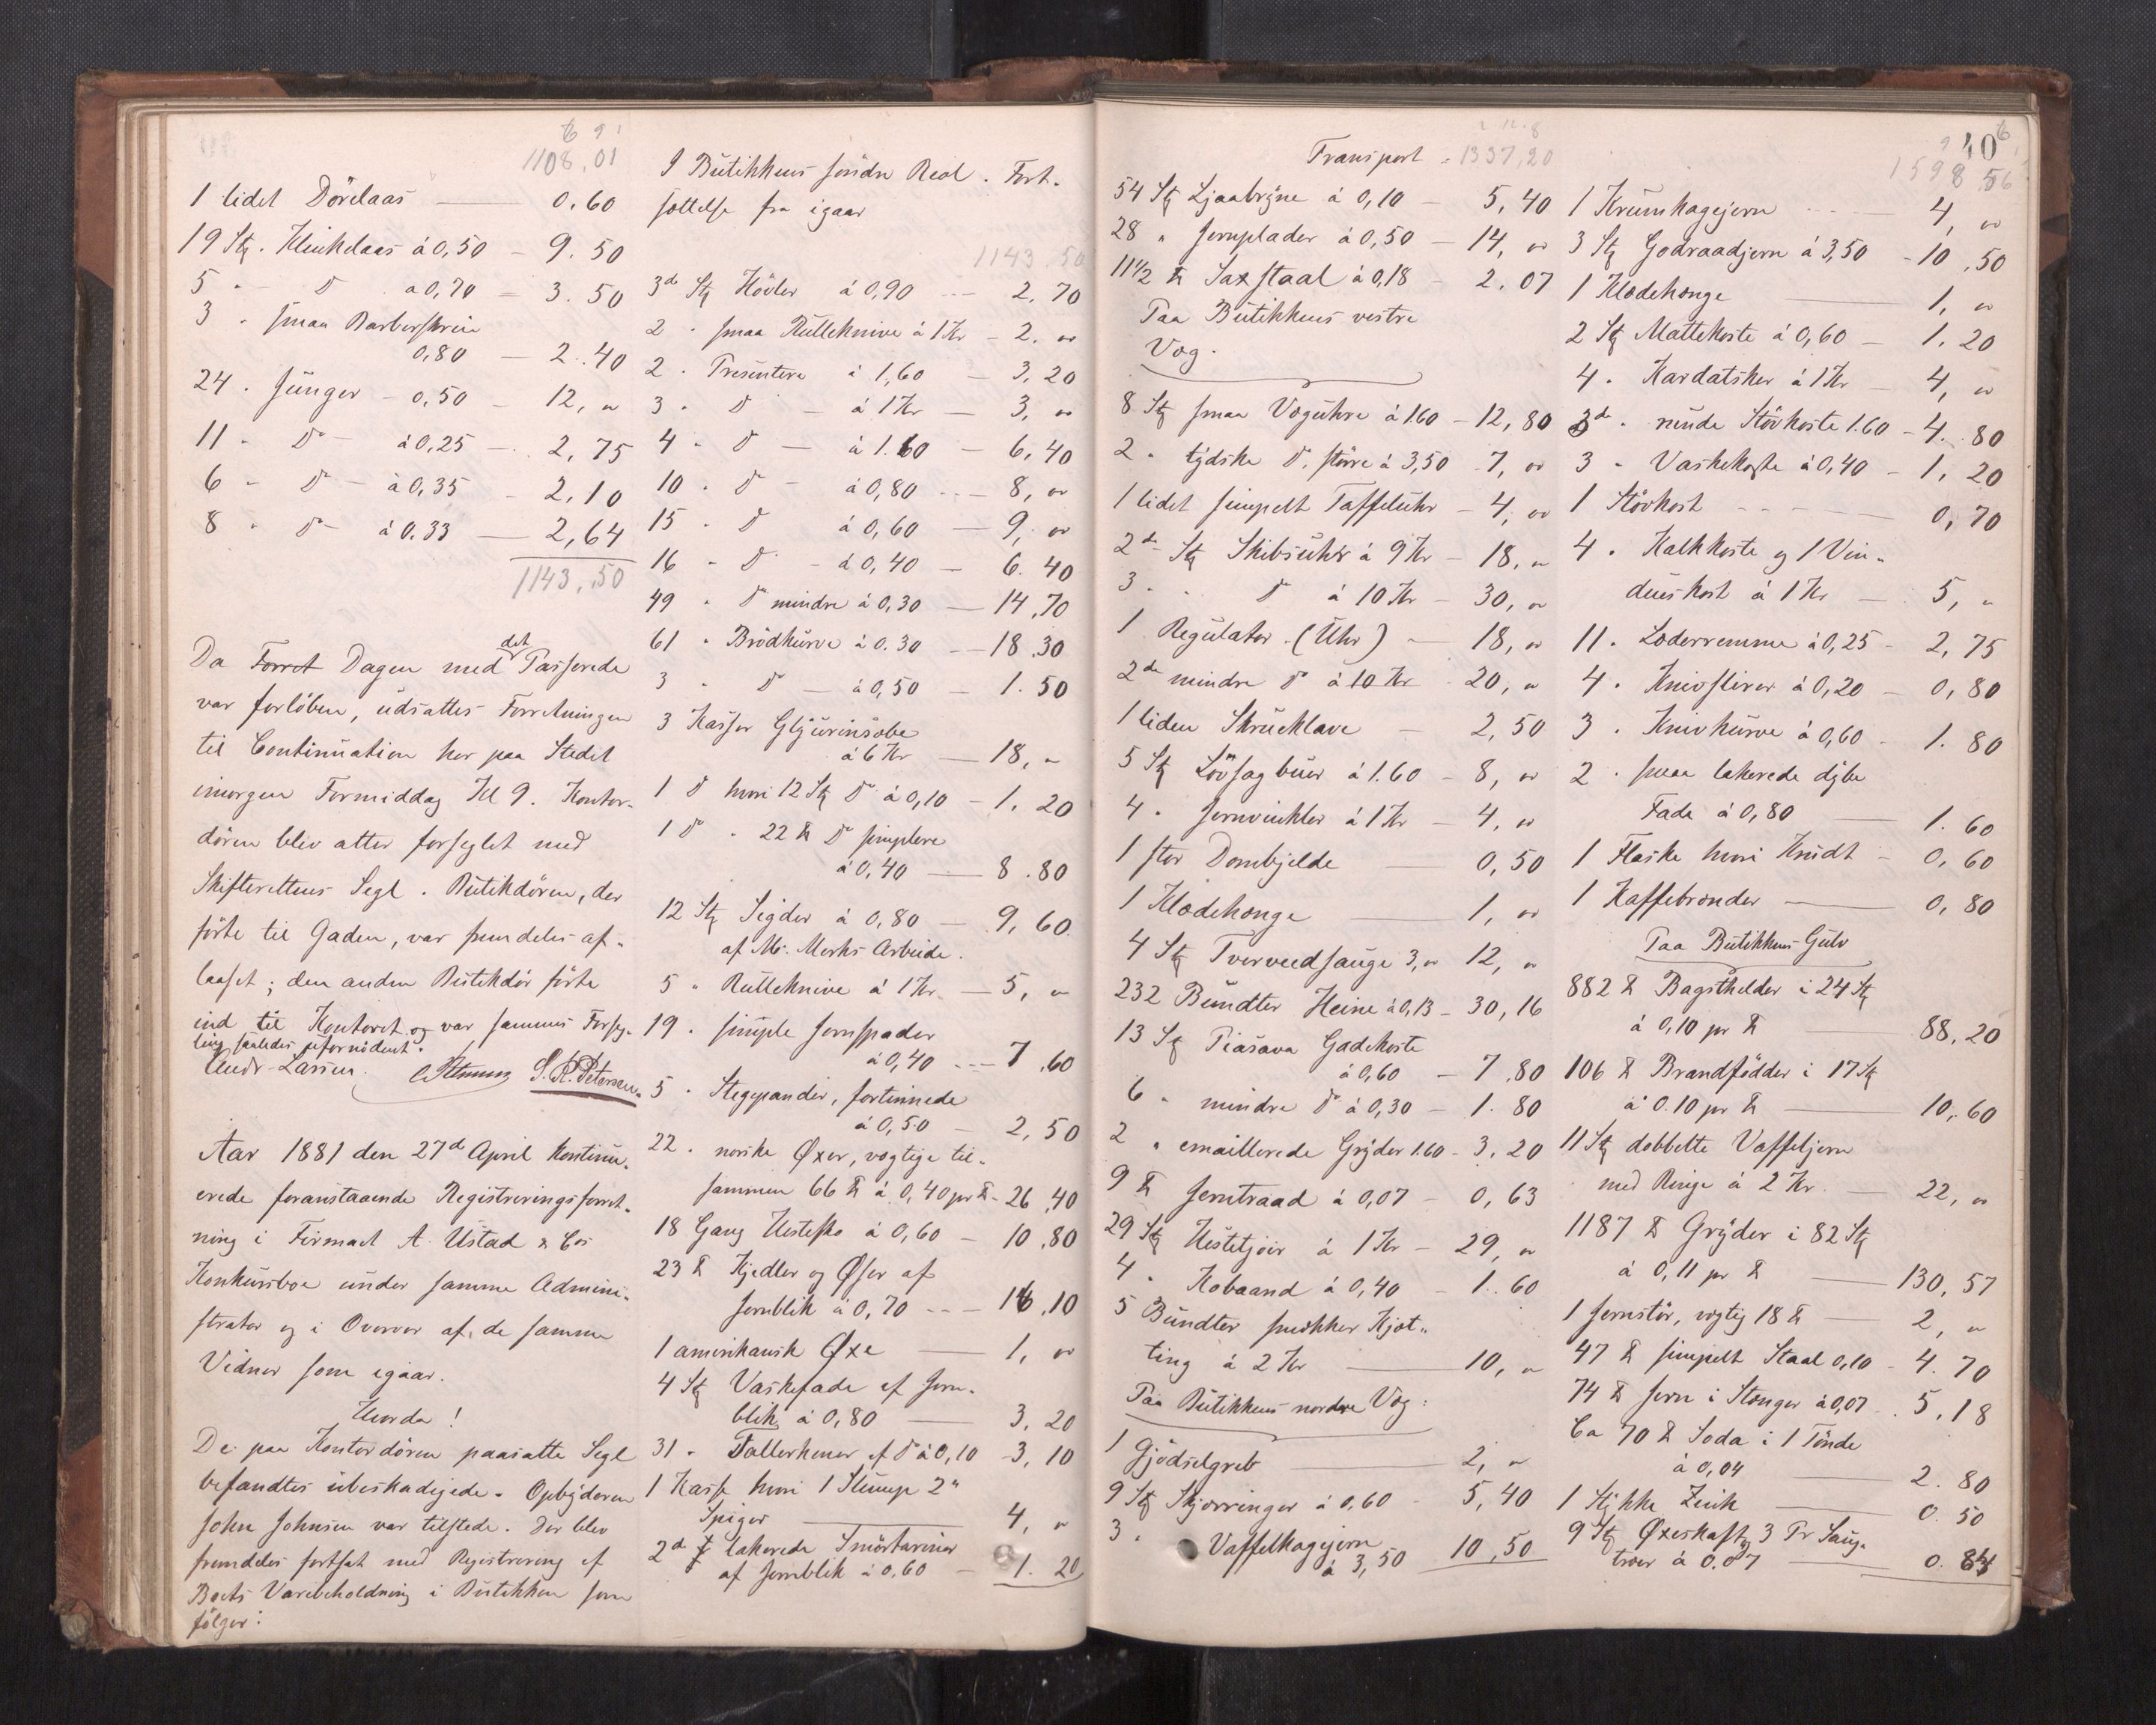 1108,01
1 lidet Dörelaas — 0.60
19 Stk. Klinkelaas à 0,50 - 9.50
5 " D° à 0,70 - 3.50
3 " smaa Barberskrin
0,80 - 2.40
24 " - 0,50 - 12, "
11 " D° à 0,25 - 2,75
6 " D° à 0,35 - 2,10
8 " D° à 0.33 - 2,64
1143,50
Da Forret Dagen med det Passerede
var forlöben, udsattes Forretningen
til Continuation her paa Stedet
imorgen Formiddag Kl 9. Kontor-
dören blev atter forseglet med
Skifterettens Segl. Butikdören, der
förte til Gaden, var fremdeles af-
laaset; den anden Butikdör förte
ind til Kontoret og var sammes Forseg-
ling saaledes ufornödent.
Andr Larsen. S. R. Petersen.
Aar 1881 den 27de April kontinu-
erede foranstaaende Registreringsforret-
ning i Firmaet A. Ustad & Cos
Konkursboe under samme Admini-
strator og i Overvær af de samme
Vidner som igaar.
Hvorda!
De paa Kontordören paasatte Segl
befandtes ubeskadigede. Opbyderen
John Johnsen var tilstede. Der blev
fremdeles fortsat med Registrering af
Boets Varebeholdning i Butikken som
fölger:
I Butikkens söndre Reol. Fort-
sættelse fra igaar
1143.50
3de Stk Hövler à 0,90 - 2,70
2 " smaa Rulleknive à 1 Kr - 2, "
2 " Presentere à 1,60 - 3,20
3 " D° - à 1 Kr - 3, "
4 " D° - à 1.60 - 6,40
10 " D° - à 0,80 - 8, "
15 " D° à 0,60 - 9, "
16 " D° - à 0,40 - 6.40
49 " D° mindre à 0,30 - 14,70
61 " Brödkurve à 0.30 - 18.30
3 " D° - à 0,50 - 1.50
3 Kasser Glyserinsæbe
à 6 Kr - 18, "
1 D° hvori 12 Stk D° à 0,10 - 1,20
1 D° " 22 ℔ D° simplere
à 0,40 - 8.80
12 Stk Sigder à 0,80 - 9,60
af M. Mørks Arbeide.
5 " Rulleknive à 1 Kr - 5, "
19 " simple Jernspader
à 0,40 - 7,60
5 " Stegepander, fortinnede
à 0,50 - 2,50
22 " norske Øxer, vægtige til-
sammen 66 ℔ à 0,40 pr ℔ - 26,40
18 Gang Hestesko à 0,60 - 10,80
23 ℔ Kjedler og Øser af
Jernblik à 0,70 - 16,10
1 amerikansk Øxe - 1, "
4 Stk Vaskefade af Jern-
blik à 0,80 - 3,20
31 " Tallerkener af D° à 0,10 - 3,10
1 Kasse hvori 1 Slump 2"
Spiger - 4, "
2de lakerede Smörtariner
af Jernblik à 0.60 - 1.20
Transport - 1337,20
54 Stk Ljaabryne à 0,10 - 5,40
28 " Jernplader à 0,50 - 14, "
11½ ℔ Saxstaal à 0,18 - 2.07
Paa Butikkens vestre
Væg.
8 Stk smaa Væguhre à 1.60 - 12,80
2 " tydske D°. större à 3,50 - 7, "
1 lidet simpelt Taffeluhr - 4, "
2de Stk Skibsuhr à 9 Kr - 18, "
3 " D° à 10 Kr - 30, "
1 Regulator (Uhr) - 18, "
2de mindre D° à 10 Kr - 20, "
1 liden Skruelklave - 2,50
5 Stk Lövsagbuer à 1.60 - 8, "
4 " Jernvinkler à 1 Kr - 4, "
1 stor Dombjelde - 0,50
1 Klædehænge - 1, "
4 Stk Tverveedsauge 3, " 12, "
232 Bundter Heine à 0,13 - 30,16
13 Stk Piasava Gadekoste
à 0,60 - 7.80
6 " mindre D° à 0,30 - 1.80
2 " emaillerede Gryder 1.60 - 3.20
9 ℔ Jerntraad à 0,07 - 0,63
29 Stk Hestetjoir à 1 Kr - 29, "
4 " Kobaand à 0,40 - 1.60
5 Bundter smekker Kjæt-
ting à 2 Kr - 10, "
Paa Butikkens nordre Væg:
1 Gjödselgreb - 2, "
9 Stk Skjærringer à 0.60 - 5,40
3 " Vaffelkagejern
à 3,50 10,50
40
1598 56
1 Krumkagejern - 4, "
3 Stk Godraadjern à 3,50 - 10,50
1 Klædehænge - 1, "
2 Stk Mattekoste à 0,60 - 1.20
4 " Kardatsker à 1 Kr - 4, "
3de " runde Stövkoste 1.60 - 4.80
3 " Vaskekoste à 0,40 - 1,20
1 Stövkost - 0,70
4 " Kalkkoste og 1 Vin-
dueskost à 1 Kr - 5, "
11 " Læderremme à 0,25 - 2,75
4 " Knivslirer à 0,20 - 0,80
3 " Knivkurve à 0,60 - 1.80
2 " smaa lakerede dybe
Fade à 0,80 - 1.60
1 Flaske hvori Krudt - 0,60
1 Kaffebrænder - 0,80
Paa Butikkens Gulv
882 ℔ Bagsthelder i 24 Stk
à 0,10 pr ℔ - 88,20
106 ℔ Brandfödder i 17 Stk
à 0.10 pr ℔ - 10,60
11 Stk dobbelte Vaffeljern
med Ringe à 2 Kr. - 22, "
1187 ℔ Gryder i 82 Stk
à 0,11 pr ℔ - 130,57
1 Jernstör, vægtig 18 ℔ - 2, "
47 ℔ simpelt Staal 0,10 - 4.70
74 ℔ Jern i Stænger à 0,07 - 5,18
Ca 70 ℔ Soda i 1 Tönde
à 0,04 - 2.80
1 Stykke Zink - 0.50
9 Stk Øxeskaft, 3 Pr Saug-
træer à 0.07 - 0.84